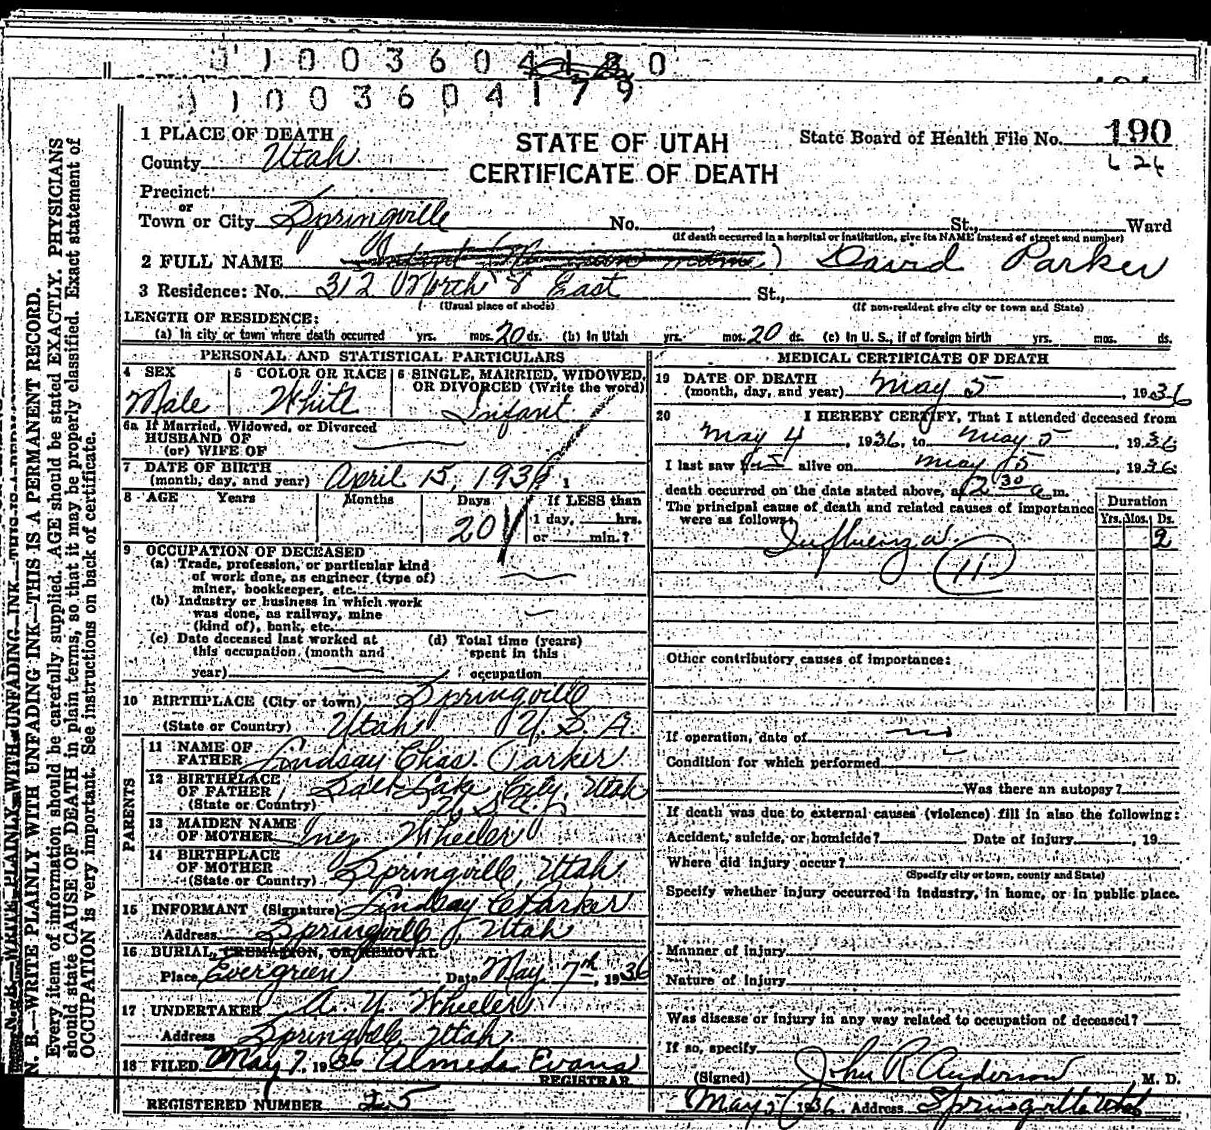 0 1 0 0 3 6 0 4 1 8 0
0 1 0 0 3 6 0 4 1 7 9
1 PLACE OF DEATH
County Utah
Precinct
or
Town or City Springville No. St., Ward
(If death occurred in a hospital or institution, give its NAME instead of street and number)
STATE OF UTAH
CERTIFICATE OF DEATH
State Board of Health File No. 190
2 FULL NAME David Parker
3 Residence: No. 312 North & East St.,
(Usual place of abode) (If non-resident give city or town and State)
LENGTH OF RESIDENCE:
(a) In city or town where death occurred yrs. mos. 20 ds. (b) In Utah yrs. mos. 20 ds. (c) In U. S., if of foreign birth yrs. mos. ds.
PERSONAL AND STATISTICAL PARTICULARS
4 SEX
Male
5 COLOR OR RACE
White
6 SINGLE, MARRIED, WIDOWED,
OR DIVORCED (Write the word)
Infant
6a If Married, Widowed, or Divorced
HUSBAND OF
(or) WIFE OF
7 DATE OF BIRTH
(month, day, and year) April 15, 1936
8 AGE Years Months Days If LESS than
20 1 day, hrs.
or min.?
9 OCCUPATION OF DECEASED
(a) Trade, profession, or particular kind
of work done, as engineer (type of)
miner, bookkeeper, etc.
(b) Industry or business in which work
was done, as railway, mine
(kind of), bank, etc.
(c) Date deceased last worked at (d) Total time (years)
this occupation (month and spent in this
year) occupation
10 BIRTHPLACE (City or town) Springville
(State or Country) Utah U. S. A.
PARENTS
11 NAME OF
FATHER Lindsay Chas. Parker
12 BIRTHPLACE
OF FATHER Salt Lake City, Utah
(State or Country) U. S. A.
13 MAIDEN NAME
OF MOTHER Inez Wheeler
14 BIRTHPLACE
OF MOTHER Springville, Utah
(State or Country)
15 INFORMANT (Signature) Lindsay C Parker
Address Springville, Utah
16 BURIAL, CREMATION, OR REMOVAL
Place Evergreen Date May 7th, 1936
17 UNDERTAKER A. Y. Wheeler
Address Springville Utah
18 FILED May 7, 1936 Almeda Evans
REGISTRAR
REGISTERED NUMBER 25
MEDICAL CERTIFICATE OF DEATH
19 DATE OF DEATH
(month, day, and year) May 5, 1936
20 I HEREBY CERTIFY, That I attended deceased from
May 4, 1936, to May 5, 1936
I last saw him alive on May 5, 1936
death occurred on the date stated above, at 2 30 a m.
The principal cause of death and related causes of importance
were as follows:
Duration
Yrs. Mos. Ds.
Influenza 2
11
Other contributory causes of importance:
If operation, date of no
Condition for which performed
Was there an autopsy?
If death was due to external causes (violence) fill in also the following:
Accident, suicide, or homicide? Date of injury, 19
Where did injury occur?
(Specify city or town, county and State)
Specify whether injury occurred in industry, in home, or in public place.
Manner of injury
Nature of injury
Was disease or injury in any way related to occupation of deceased?
If so, specify
(Signed) John R Anderson M. D.
May 5 1936 Address Springville Utah
N. B.—WRITE PLAINLY WITH UNFADING INK—THIS IS A PERMANENT RECORD.
Every item of information should be carefully supplied. AGE should be stated EXACTLY. PHYSICIANS
should state CAUSE OF DEATH in plain terms, so that it may be properly classified. Exact statement of
OCCUPATION is very important. See instructions on back of certificate.